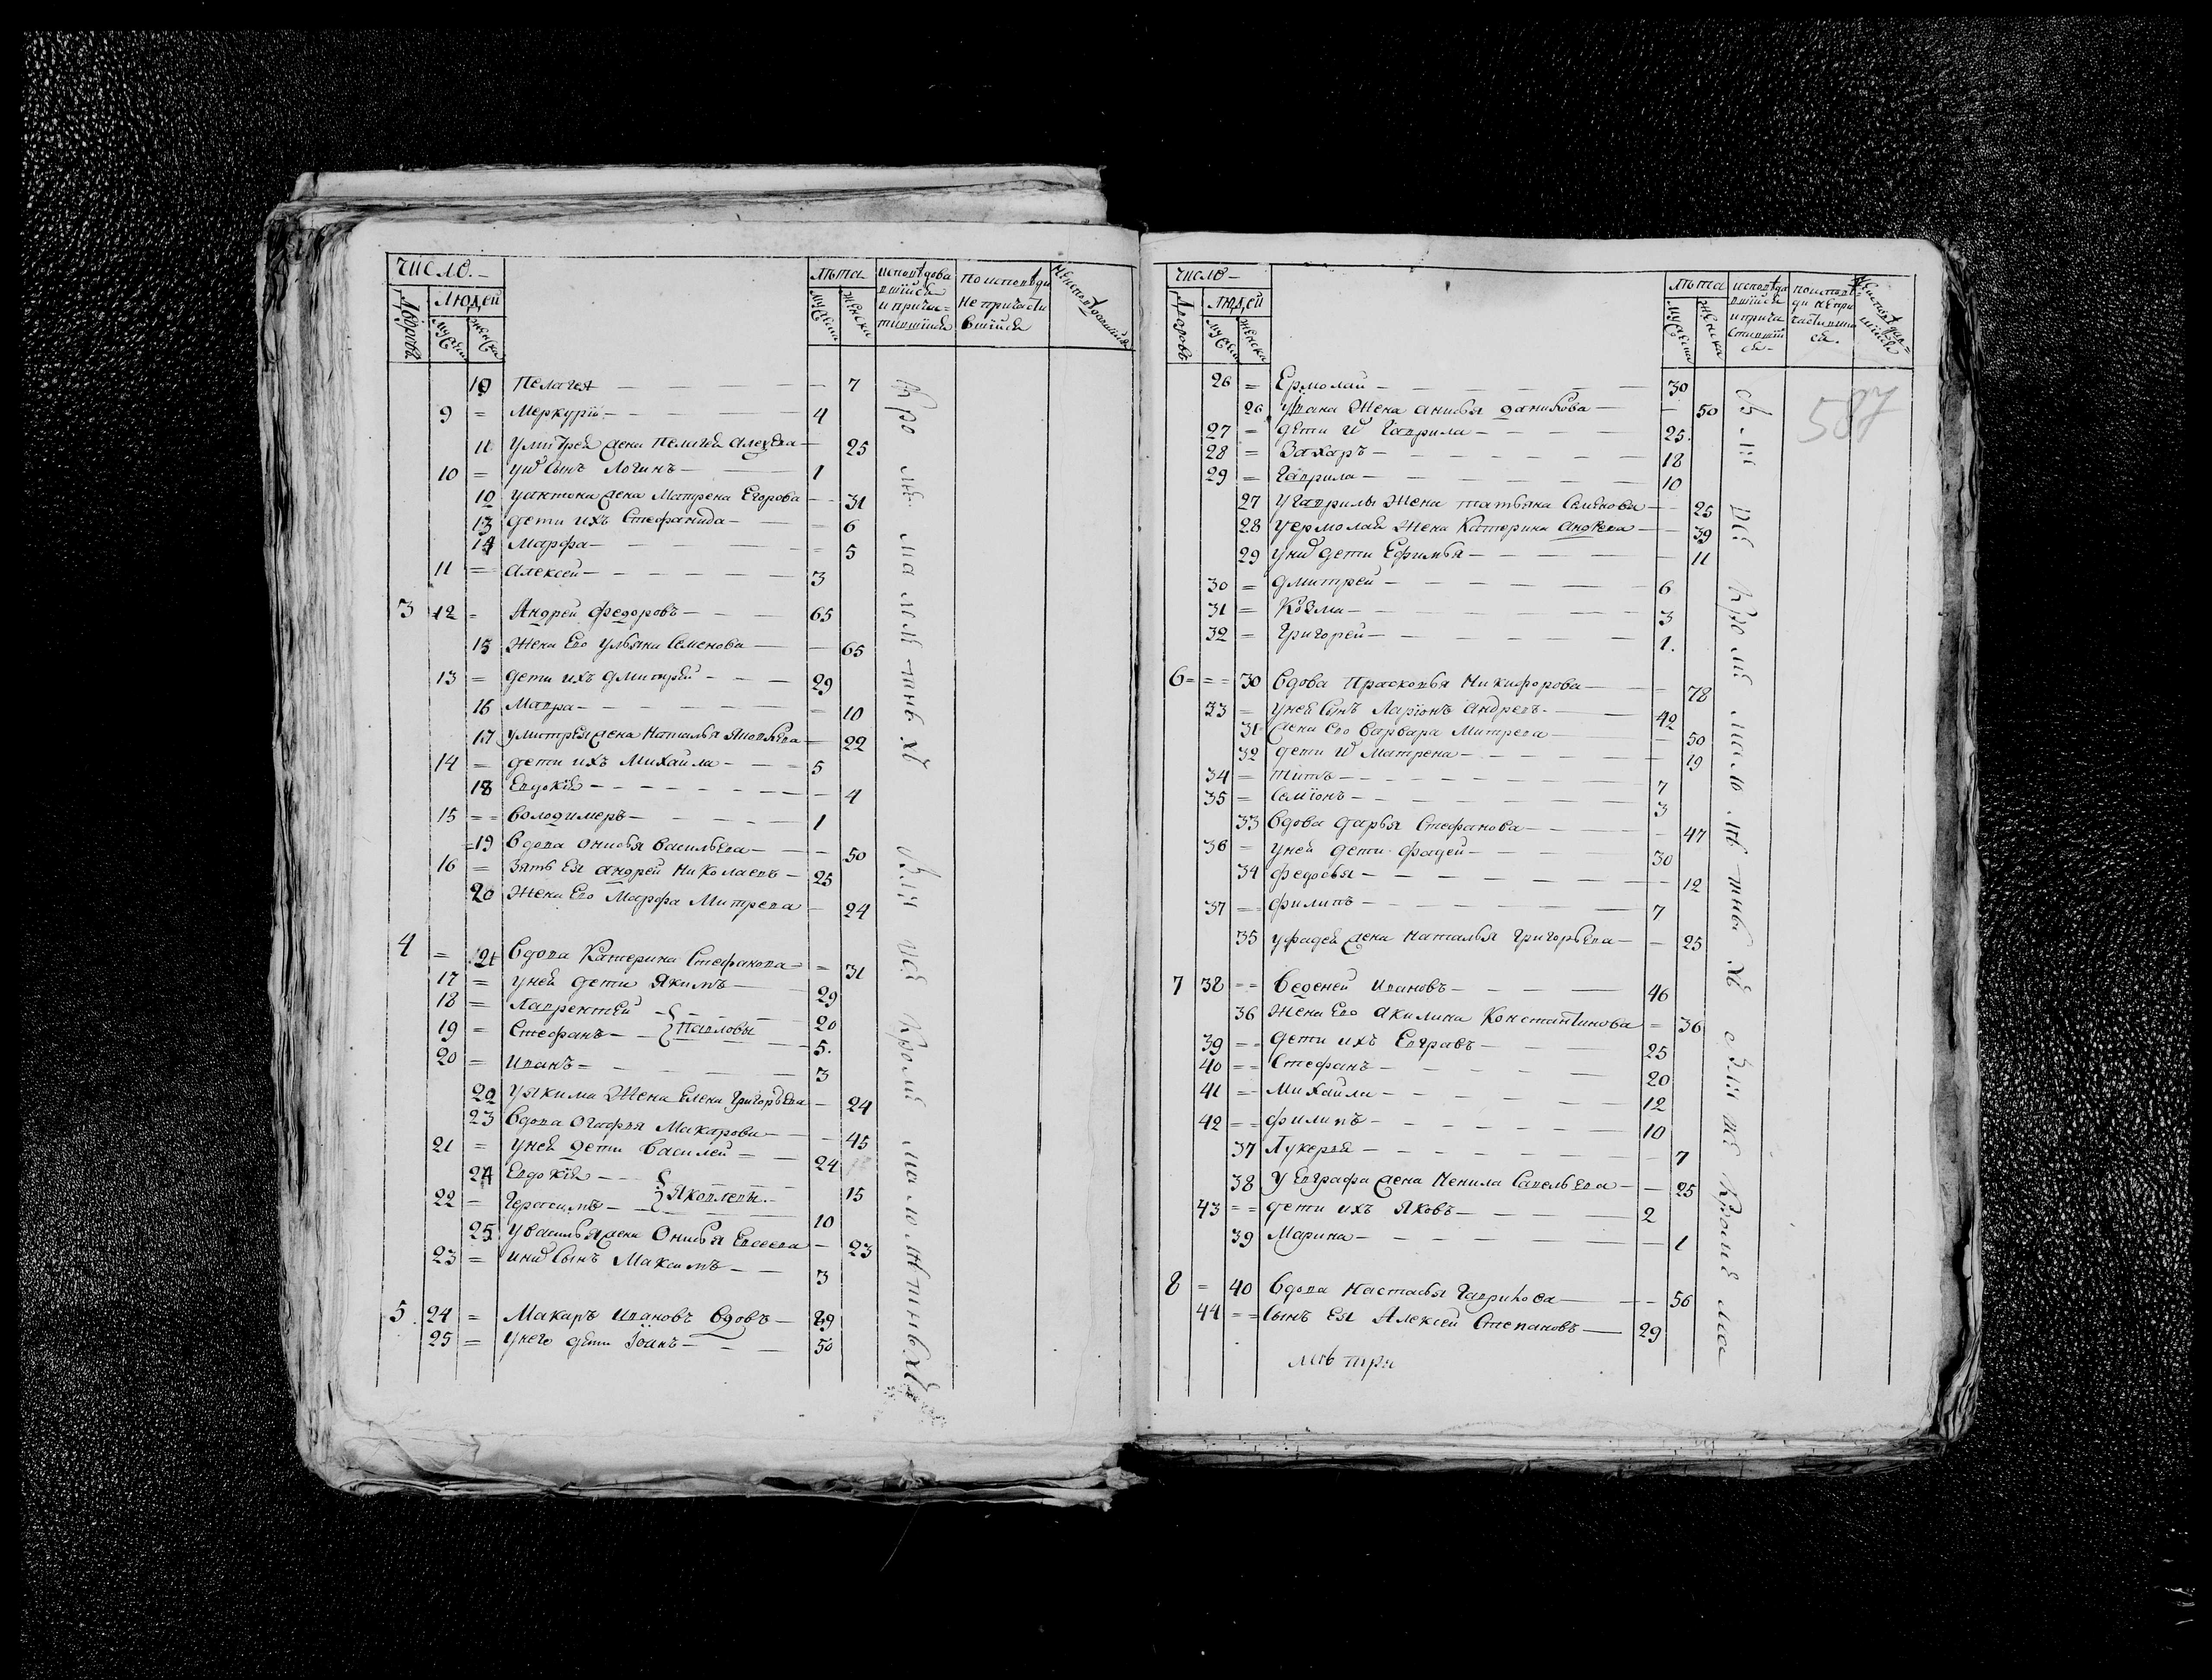 число.
Дворовъ
людей
мужеска
женска
лѣта
мужеска
женска
исповѣдова
вшїися
и прича=
стившїися
по исповѣди
не причасти
вшїися
10 Пелагея — 7
9 = Меркурїй — 4
11 у митрея жена Пелагея Алеѯева — 25
10 = у ни сынъ Логинъ — 1
12 у антона жена Матрена Егорова — 31
13 дети ихъ Стефанида — 6
14 Марфа — 5
11 = Алексей — 3
3 12 = Андрей Федоровъ — 65
15 Жена Ево Ульяна Семенова — 65
13 = дети ихъ Дмитрей — 29
16 Мавра — 10
17 у митрея жена Наталья Яковлева — 22
14 = дети ихъ Михайла — 5
18 Евдокїя — 4
15 = Володимеръ — 1
19 Вдова Онисья Васильева — 50
16 = Зять Ея Андрей Николаевъ — 25
20 Жена Ево Марфа Митрева — 24
4 = 21 Вдова Катерина Стефанова = 31
17 = у ней дети Якимъ — 29
18 = Лаврентей — 20
19 = Стефанъ — } Павловы 5.
20 = Иванъ = 3
22 у Якима Жена Елена Григорьева — 24
23 Вдова Огафья Макарова — 45
21 = у ней дети Василей = 24
24 Евдокїя — 15
22 = Герасимъ — } Яковлевы. 10
25 у Василья жена Онисья Евсеева — 23
23 = у ни сынъ Максимъ — 3
5. 24 = Макаръ Ивановъ Вдовъ — 89
25 = у него дети Іоанъ — 50
число
Дворовъ
людей
мужеска
женска
лѣта
мужеска
женска
исповѣдо
вшїися
и прича
стившїи
ся
по исповѣ
ди не при
частивши
ся.
587
26 = Ермолай — 30
26 у Ивана Жена Анисья Данилова — 50
27 = дети и Гаврила — 25.
28 = Захаръ — 18
29 = Гаврила — 10
27 у Гаврилы Жена Татьяна Семенова — 25
28 у ермолая Жена Катерина Андреева — 39
29 у ни дети Ефимья — 11
30 = Дмитрей — 6
31 = Козма — 3
32 = Григорей — 1.
6 = = 30 Вдова Прасковья Никифорова — 78
33 = у ней сынъ Ларїонъ Андревъ — 42
31 жена Ево Варвара Митрева — 50
32 дети и Матрена — 19
34 = Титъ — 7
35 = Семїонъ — 3
33 Вдова Дарья Стефанова — 47
36 = у ней дети Фадей — 30
34 Федосья — 12
37 = Филипъ — 7
35 у фадея жена Наталья Григорьева — 25
7 38 = Веденей Ивановъ — 46
36 Жена Ево Акилина Константинова = 36
39 = дети ихъ Евграфъ — 25
40 = Стефанъ — 20
41 = Михайла — 12
42 = Филипъ — 10
37 Лукерья — 7
38 у Евграфа жена Ненила Савельева — 25
43 = дети ихъ Яковъ — 2
39 Марина — 1
8 = 40 Вдова Настасья Гаврилова — 56
44 = Сынъ Ея Алексей Степановъ — 29